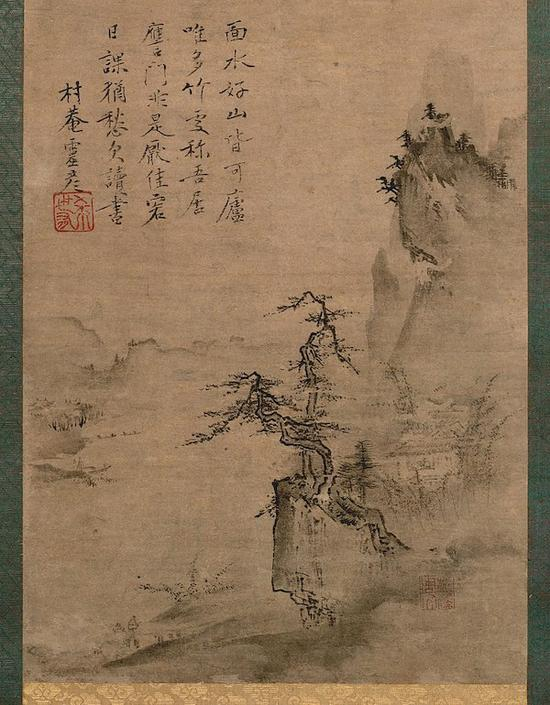 面水好山皆可廬
唯多竹處称吾居
譍門非是厭佳客
日課猶愁欠讀書
村菴霊彦